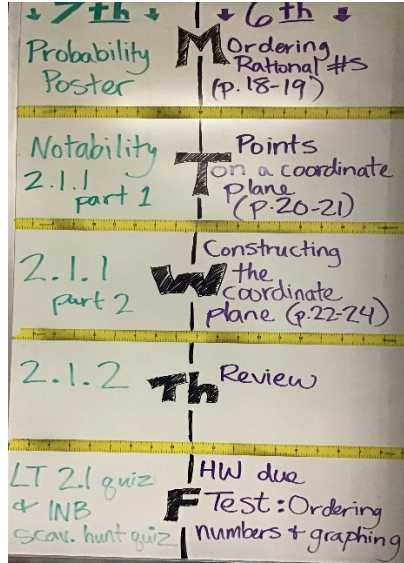 ↓ 7th ↓ ↓ 6th ↓
Probability
Poster
M
Ordering
Rational #s
(p. 18-19)
Notability
2.1.1
part 1
T
Points
on a coordinate
plane
(p. 20-21)
2.1.1
part 2
W
Constructing
the
coordinate
plane (p. 22-24)
2.1.2
Th
Review
LT 2.1 quiz
& INB
scav. hunt quiz
F
HW due
Test: Ordering
numbers + graphing